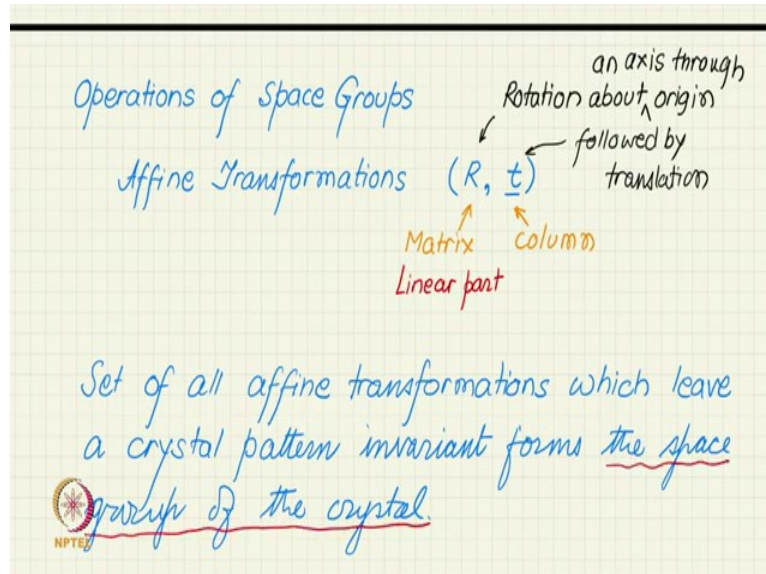 Operations of Space Groups
an axis through
Rotation about ^ origin
Affine Transformations (R, t)
followed by
translation
Matrix Column
Linear part
Set of all affine transformations which leave
a crystal pattern invariant forms the space
group of the crystal.
NPTEL